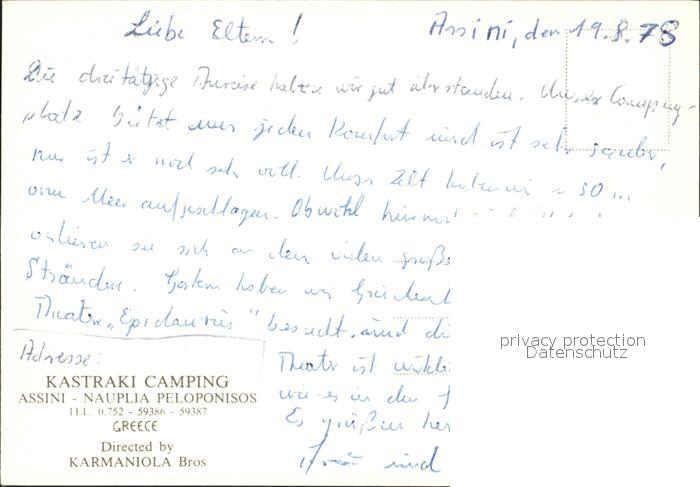 Liebe Eltern!
Assini, den 19.8.78
Die dreitägige Anreise haben wir gut überstanden. Unser Camping-
platz bietet uns jeden Komfort und ist sehr sauber,
nur ist er noch sehr voll. Unser Zelt haben wir ~ 50 m
vom Meer aufgeschlagen. Obwohl hier noch
verlieren sie sich an den vielen große
Stränden. Gestern haben wir Griechenl
Theater „Epidaurus“ besucht. und di
Theater ist wirkli
wie es in den
Es grüßen her
und
Adresse:
KASTRAKI CAMPING
ASSINI - NAUPLIA PELOPONISOS
TEL. 0.752 - 59386 - 59387
GREECE
Directed by
KARMANIOLA Bros
privacy protection
Datenschutz